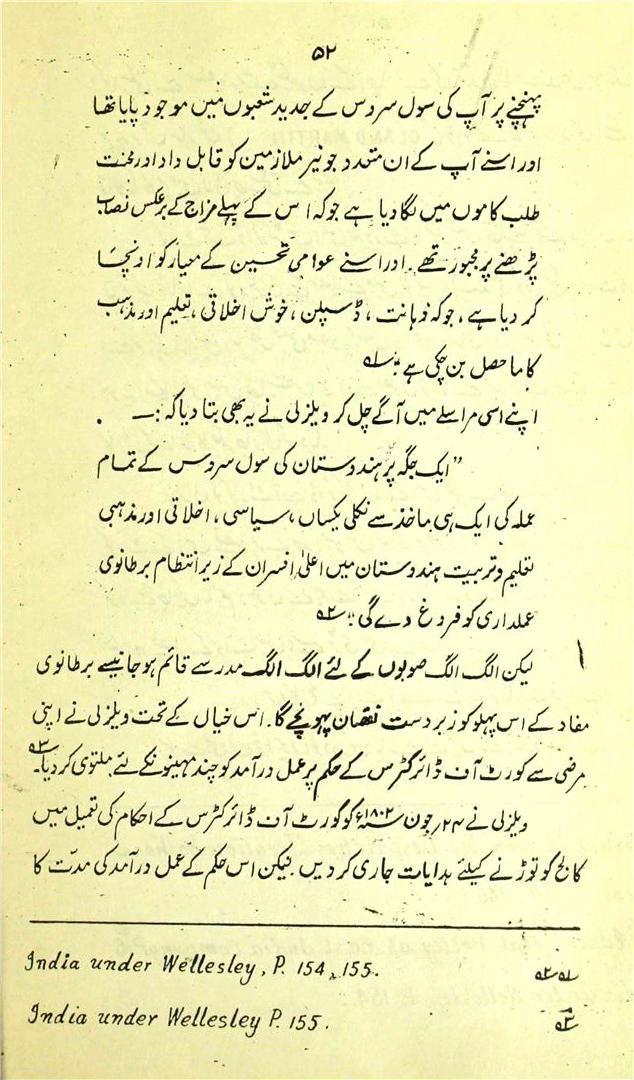 ۵۲
پہنچنے پر آپ کی سول سروس کے جدید شعبوں میں موجود پایا تھا
اور اسنے آپ کے ان متعدد جونیر ملازمین کو قابل داد اور محنت
طلب کاموں میں لگا دیا ہے جو کہ اس کے پہلے مزاج کے برعکس نصاب
پڑھنے پر مجبور تھے۔ اور اسنے عوامی تحسین کے معیار کو اونچا
کر دیا ہے، جو کہ ذہانت، ڈسپلن، خوش اخلاقی، تعلیم اور مذہب
کا ماحصل بن چکی ہے ؛ ۵۱
اپنے اسی مراسلے میں آگے چل کر ویلزلی نے یہ بھی بتا دیا کہ :—
"ایک جگہ پر ہندوستان کی سول سروس کے تمام
عملہ کی ایک ہی ماخذ سے نکلی یکساں، سیاسی، اخلاقی اور مذہبی
تعلیم و تربیت ہندوستان میں اعلیٰ افسران کے زیر انتظام برطانوی
عملداری کو فروغ دے گی ؛ ۵۲
لیکن الگ الگ صوبوں کے لئے الگ الگ مدرسے قائم ہو جانیسے برطانوی
مفاد کے اس پہلو کو زبردست نقصان پہونچے گا۔ اس خیال کے تحت ویلزلی نے اپنی
مرضی سے کورٹ آف ڈائرکٹرس کے حکم پر عمل درآمد کو چند مہینونکے لئے ملتوی کر دیا۔ ۵۳
ویلزلی نے ۲۴؍ جون ۱۸۰۲ء کو کورٹ آف ڈائرکٹرس کے احکام کی تعمیل میں
کالج کو توڑنے کیلئے ہدایات جاری کر دیں۔ لیکن اس حکم کے عمل درآمد کی مدّت کا
India under Wellesley, P. 154, 155. ۵۱ ۵۲
India under Wellesley P. 155. ۵۳